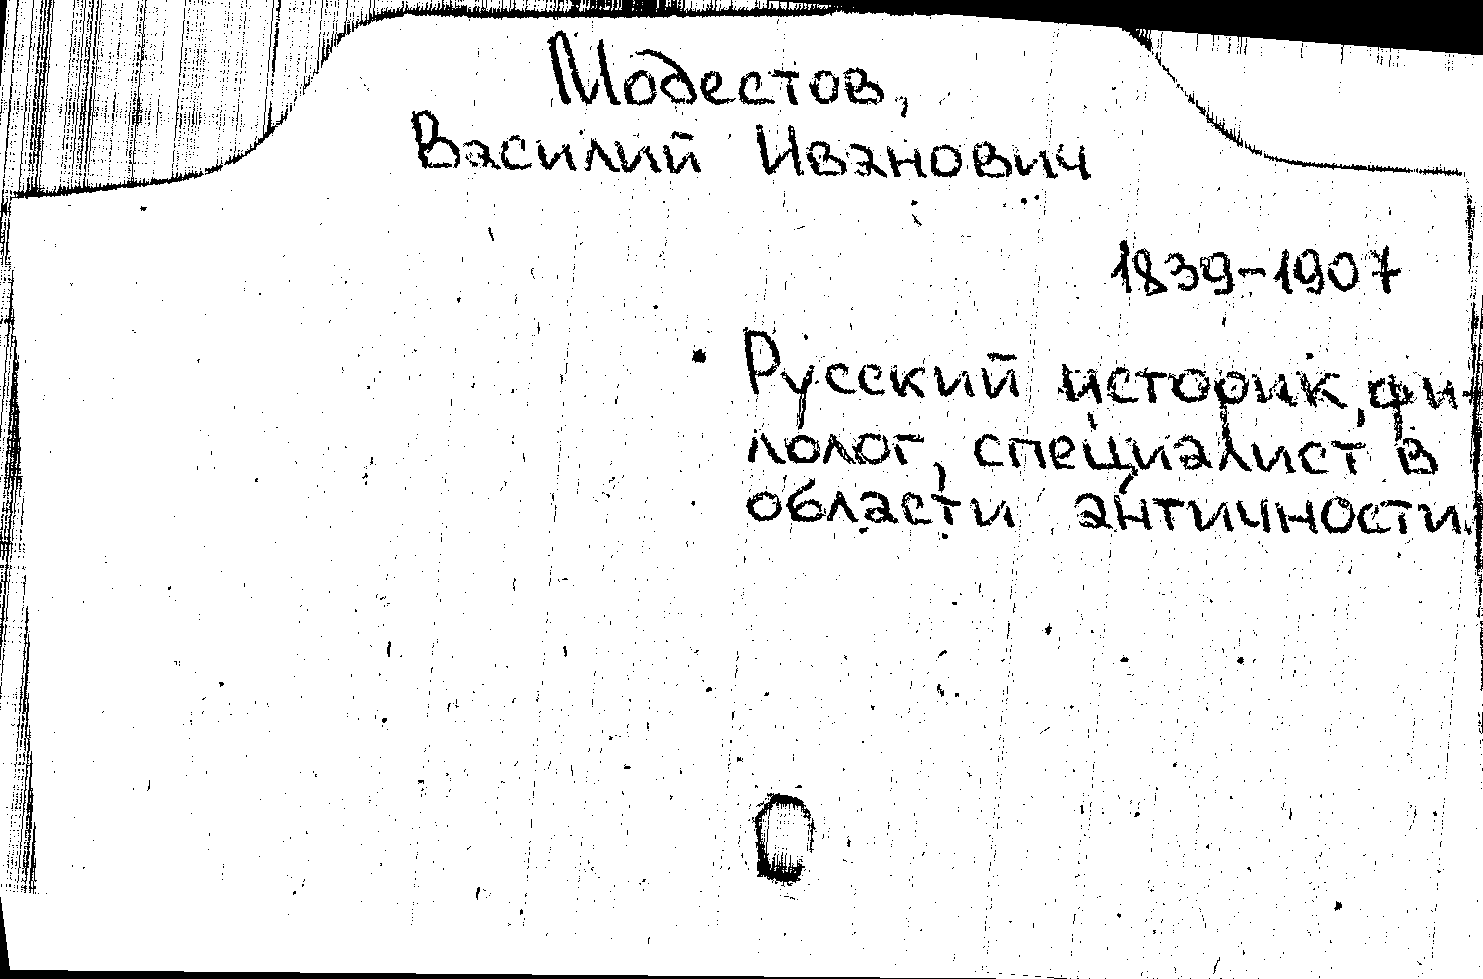 Модестов,
Василий Иванович
1839-1907
Русский историк, фи-
лолог, специалист в
области античности.